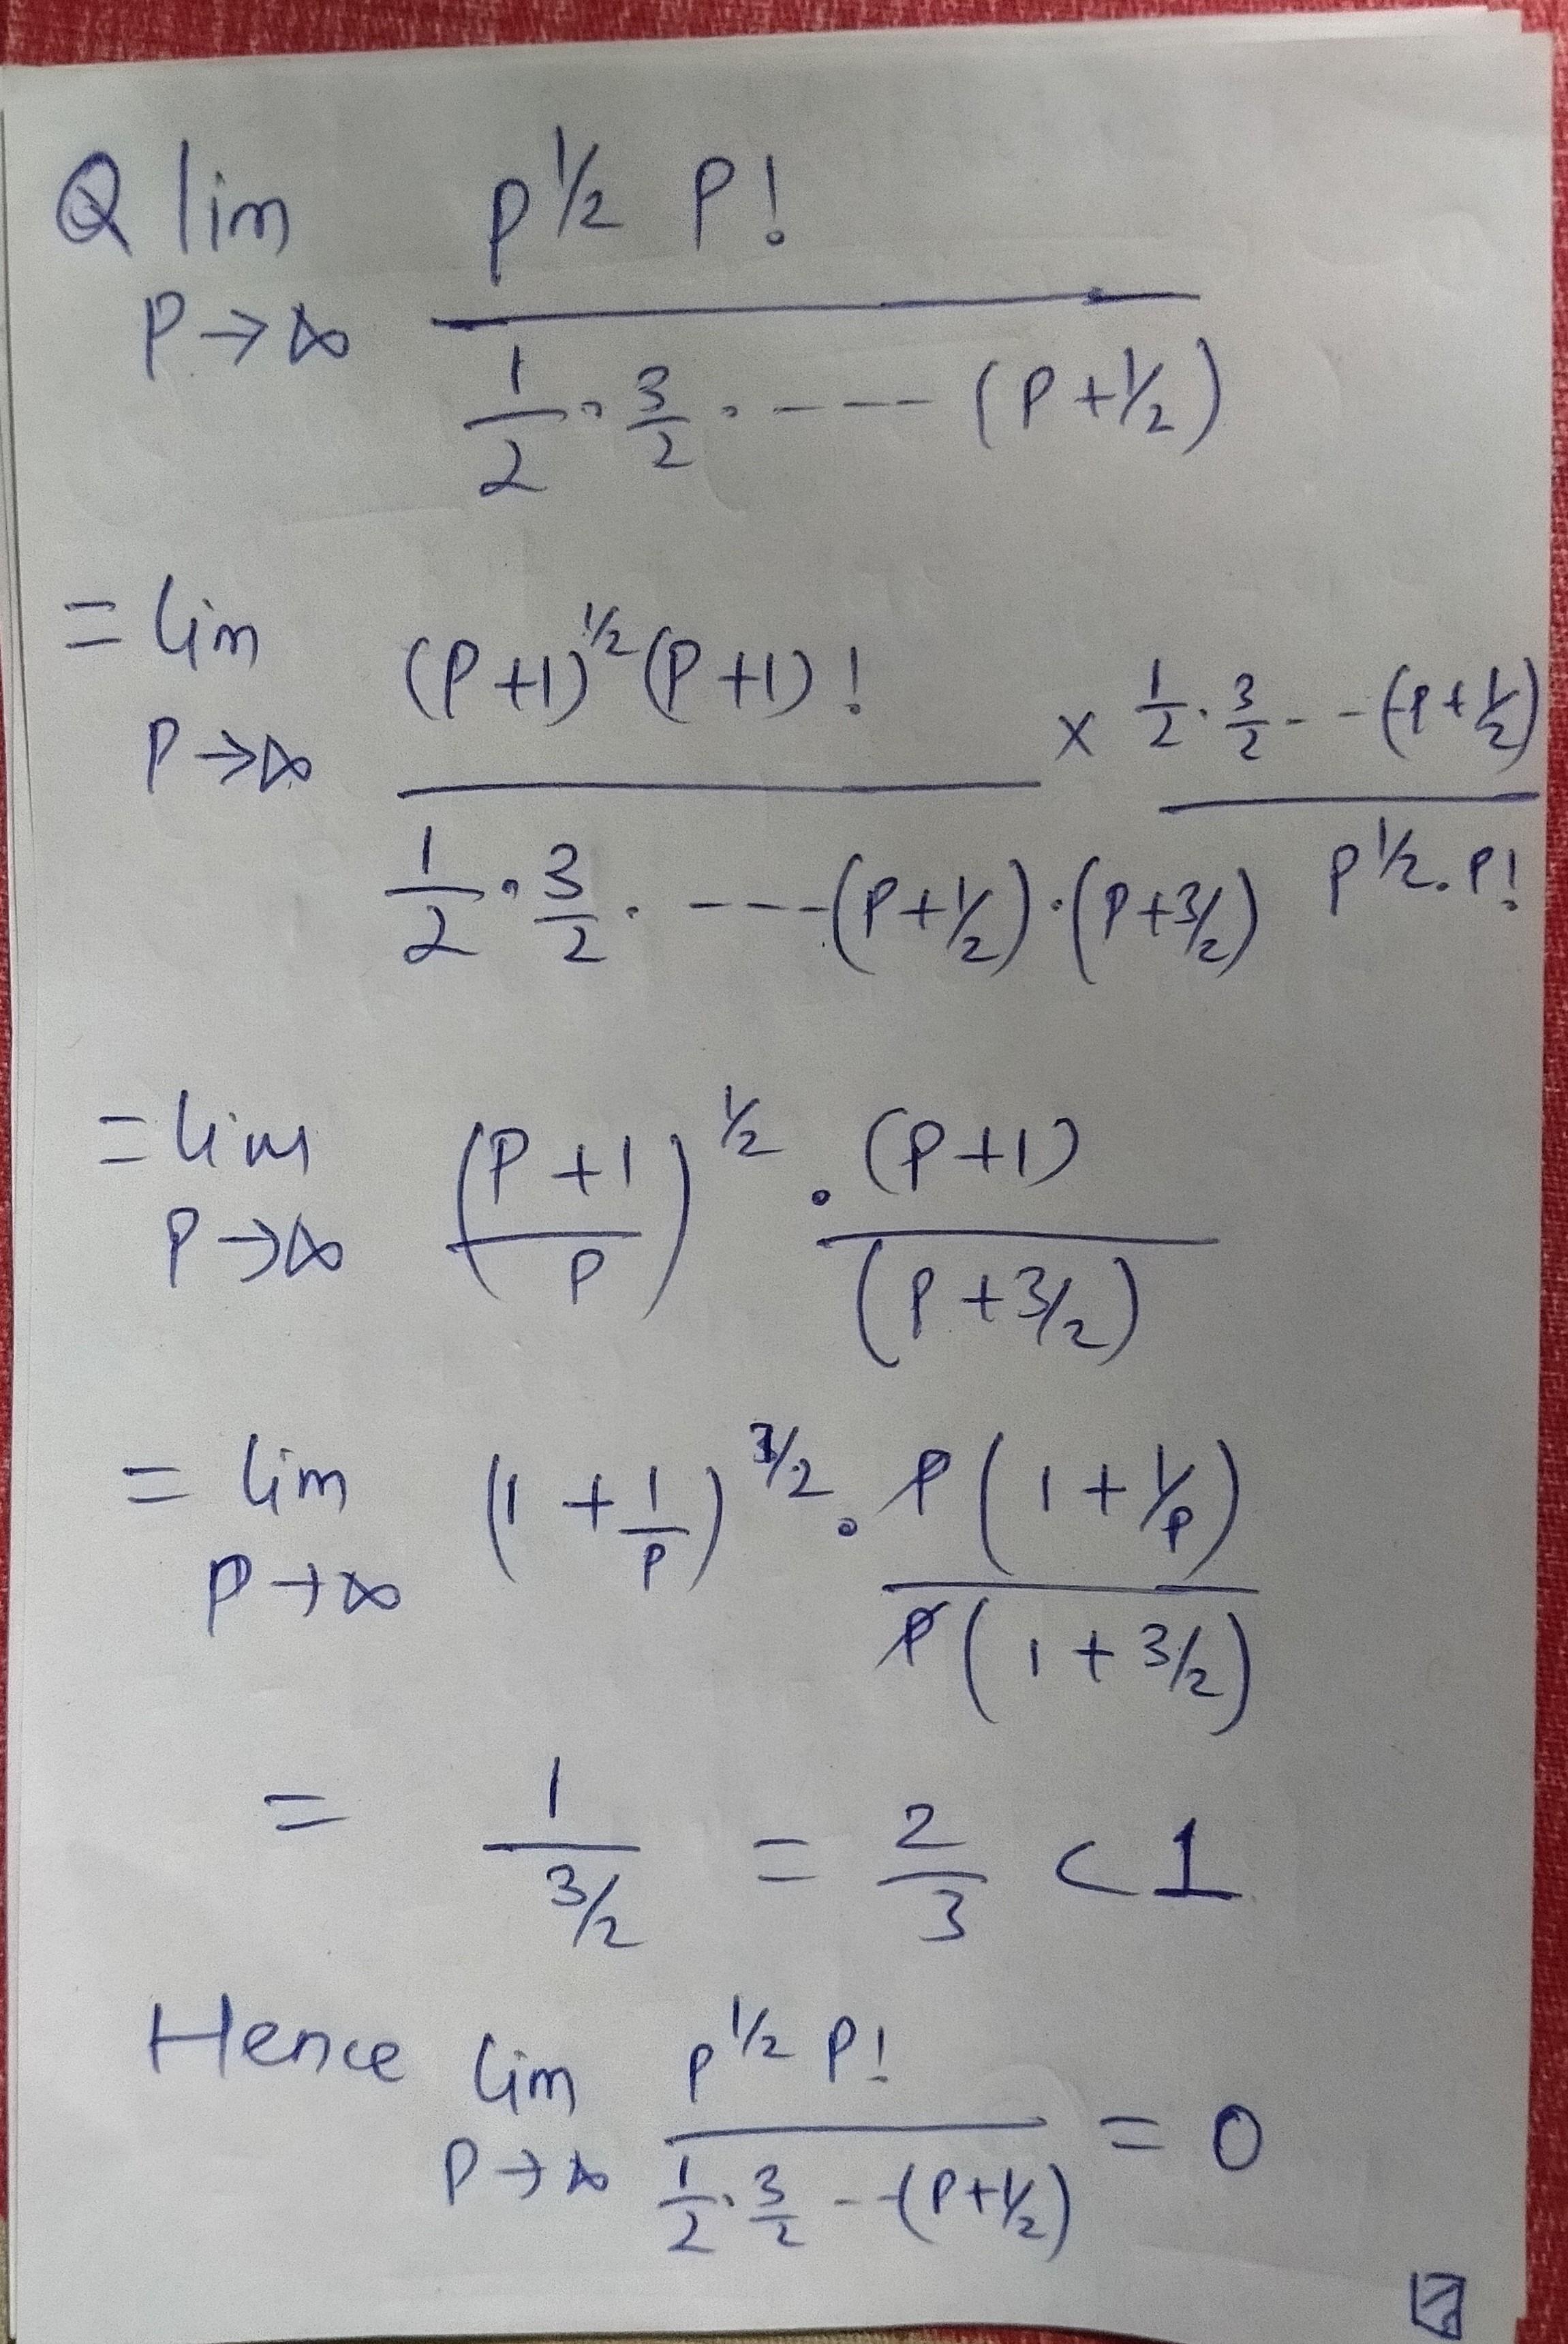 Q lim P→∞ p^1/2 P! / 1/2 · 3/2 · ---- (P+1/2)
= lim P→∞ (P+1)^1/2 (P+1)! / 1/2 · 3/2 · ----(P+1/2)·(P+3/2) × 1/2 · 3/2 -- -(P+1/2) / p^1/2 . P!
= lim P→∞ (P+1 / P)^1/2 . (P+1) / (P+3/2)
= lim P→∞ (1 + 1/P)^3/2 . P(1+1/P) / P(1+3/2)
= 1 / 3/2 = 2/3 < 1
Hence lim P→∞ p^1/2 P! / 1/2 · 3/2 --(P+1/2) = 0